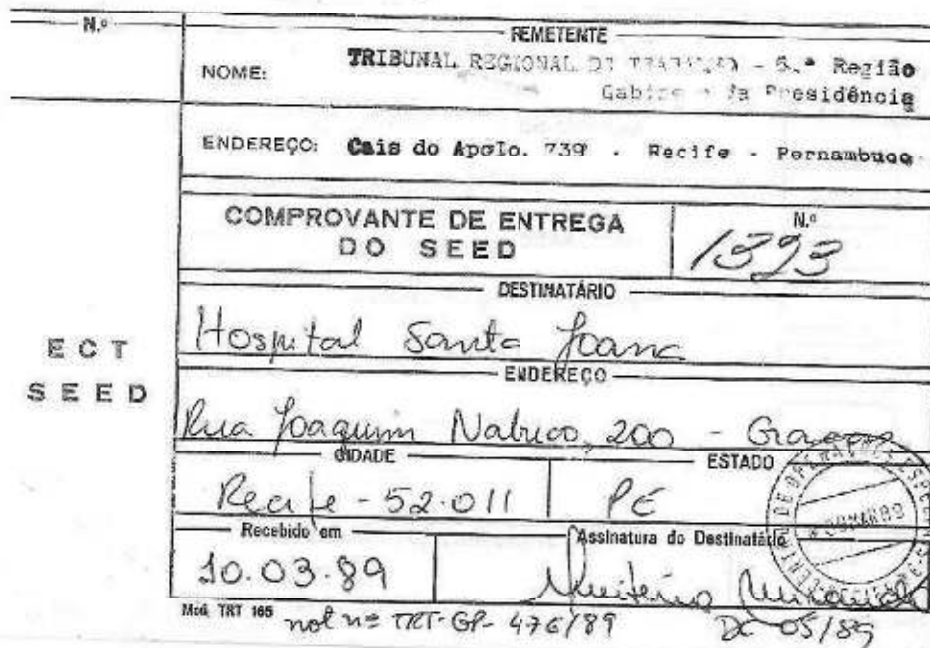 N.º
REMETENTE
NOME: TRIBUNAL REGIONAL DO TRABALHO - 6.ª Região
Gabinete da Presidência
ENDEREÇO: Cais do Apolo. 739 - Recife - Pernambuco
COMPROVANTE DE ENTREGA
DO SEED
N.º
1393
DESTINATÁRIO
Hospital Santa Joana
ECT
SEED
ENDEREÇO
Rua Joaquim Nabuco, 200 - Graças
CIDADE
ESTADO
Recife - 52.011
PE
Recebido em
Assinatura do Destinatário
10.03.89
Mod. TRT 165
not nº TRT-GP- 476/89
DC 05/89